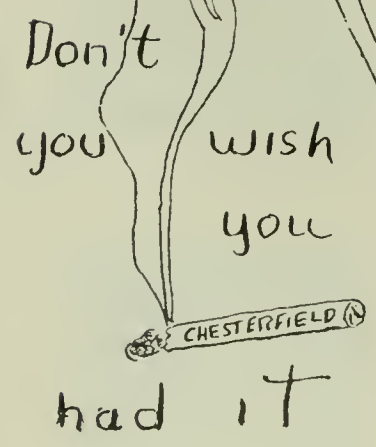 Don't
you wish
you
CHESTERFIELD
had it